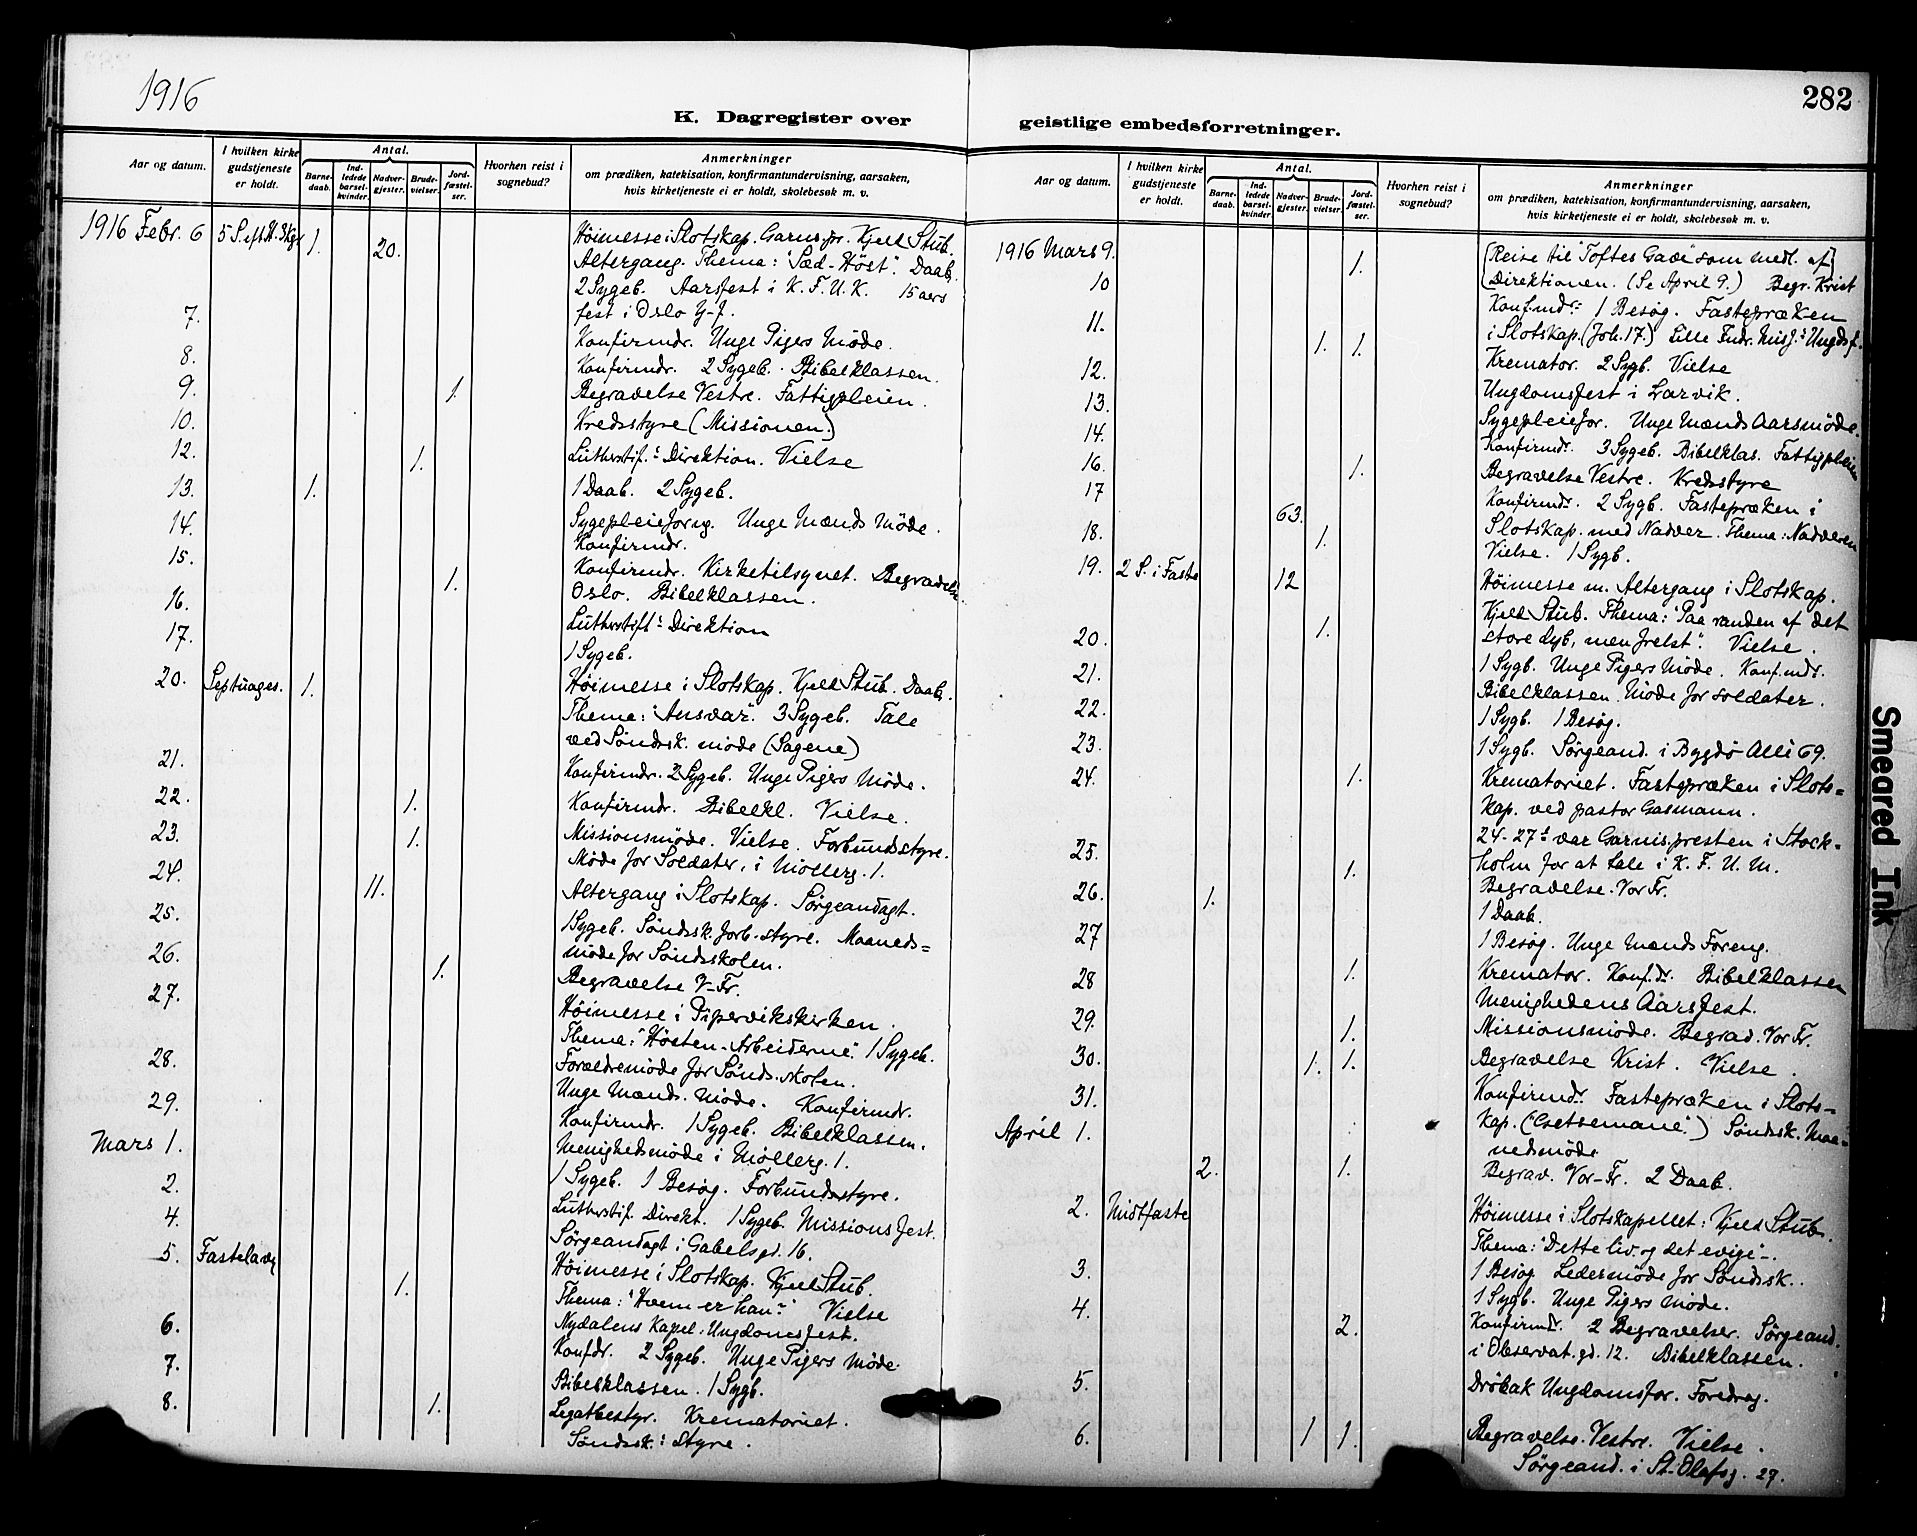 1916
282
K. Dagregister over
geistlige embedsforretninger.
Aar og datum.
I hvilken kirke gudstjeneste er holdt.
Antal.
Barne-daab.
Ind-ledede barsel-kvinder.
Nadver-gjester.
Brude-vielser.
Jord-fæstel-ser.
Hvorhen reist i sognebud?
Anmerkninger
om prædiken, katekisation, konfirmantundervisning, aarsaken,
hvis kirketjeneste ei er holdt, skolebesøk m. v.
1916 Febr. 6 5 S. eft. H. 3 Kg. 1. 20. Höimesse i Slotskap. Garns.pr. Kjeld Stub.
Altergang. Thema: "Sæd-Höst". Daab.
2 Sygeb. Aarsfest i K. F. U. K. 15 aars
fest i Oslo Y-f.
7. Konfirmdr. Unge Pigers Møde.
8. Konfirmdr. 2 Sygeb. Bibelklassen.
9. 1. Begravelse Vestre. Fattigpleien.
10. Kredsstyre (Missionen)
12. 1. Lutherstif.: Direktion. Vielse
13. 1. 1 Daab. 2 Sygeb.
14. Sygepleieforng. Unge Mænds Møde.
Konfirmdr.
15. 1. Konfirmdr. Kirketilsynet. Begravelse
Oslo. Bibelklassen.
16. Lutherstift: Direktion
17. 1 Sygeb.
20. Septuages. 1. Höimesse i Slotskap. Kjeld Stub. Daab.
Thema: "Ansvar". 3 Sygeb. Tale
ved Söndssk. møde (Sagene)
21. Konfirmdr. 2 Sygeb. Unge Pigers Møde.
22. 1. Konfirmdr. Bibelkl. Vielse.
23. 1. Missionsmöde. Vielse. Forbundsstyre.
Møde for Soldater, i Möllerg. 1.
24. 11. Altergang i Slotskap. Sørgeandagt.
25. 1 Sygeb. Söndssk. forb. styre. Maaneds=
møde for Söndsskolen.
26. 1. Begravelse V-Fr.
27. Höimesse i Pipervikskirken.
Thema: "Hösten-Arbeiderne". 1 Sygeb.
28. Forældremöde for Sönds.skolen.
Unge Mænds. Möde. Konfirmdr.
29. Konfirmdr. 1 Sygeb. Bibelklassen.
Mars 1. Menighedsmöde i Möllerg. 1.
2. 1 Sygeb. 1 Besög. Forbundsstyre.
4. Lutherstif. Direkt. 1 Sygeb. Missionsfest.
Sörgeandagt i Gabelsgd. 16.
5. Fastelavn 1. Höimesse i Slotskap. Kjeld Stub.
Thema: "Hvem er han?" Vielse
6. Nydalens Kapel. Ungdomsfest.
7. Konfdr. 2 Sygeb. Unge Pigers Møde.
8. 1. Bibelklassen. 1 Sygb.
Legatbestyr. Krematoriet.
Söndssk.: styre.
Aar og datum.
I hvilken kirke gudstjeneste er holdt.
Antal.
Barne-daab.
Ind-ledede barsel-kvinder.
Nadver-gjester.
Brude-vielser.
Jord-fæstel-ser.
Hvorhen reist i sognebud?
Anmerkninger
om prædiken, katekisation, konfirmantundervisning, aarsaken,
hvis kirketjeneste ei er holdt, skolebesøk m. v.
1916 Mars 9. 1. (Reise til "Toftes Gave" som medl. af)
10 Direktionen. (Se April 9.) Begr. Krist
Konf.mdr: 1 Besög. Fastepræken
11. 1. 1. i Slotskap. (Joh. 17.) Lille Indr. Misj.: Ungdsf.
12. Kremator. 2 Sygb. Vielse
13. Ungdomsfest i Larvik.
14. Sygepleiefor. Unge Mænds Aarsmöde.
Konfirmdr. 3 Sygeb. Bibelklas. Fattigpleien
16. 1. Begravelse Vestre. Kredsstyre
17 63. Konfirmdr. 2 Sygb. Fastepræken i
Slotskap. med Nadver. Thema: Nadveren
18. 1. Vielse. 1 Sygb.
19. 2 S. i Faste 12 Höimesse m. Altergang i Slotskap.
Kjeld Stub. Thema: "Paa randen af det
20. 1. store dyb, men frelst". Vielse.
21. 1 Sygb. Unge Pigers Möde. Konf.mdr.
Bibelklassen. Möde for soldater.
22. 1 Sygb. 1 Besög.
23. 1 Sygb. Sørgeand. i Bygdö Allé 69.
24. 1. Krematoriet. Fastepræken i Slots=
kap. ved pastor Gasmann.
25. 24-27: var Garnis.presten i Stock=
holm for at tale i K. F. U. M.
1. Begravelse. Vor Fr.
26. 1. 1 Daab.
27 1 Besög. Unge Mænds Foreng.
28 1. Kremator. Konf.dr. Bibelklassen
Menighedens Aarsfest.
29. 1. Missionsmöde. Begrad. Vor Fr.
30. 1. 1. Begravelse Krist. Vielse.
31. Konfirmdr. Fastepræken i Slots=
April 1. kap. (Getsemane.) Söndssk. Maa=
nedsmöde.
2. 1. Begrav. Vor-Fr. 2 Daab.
2. Midtfaste Höimesse i Slotskapellet: Kjeld Stub.
Thema: "Dette liv og det evige".
3. 1 Besög. Ledermöde for Söndssk.
4. 1 Sygb. Unge Pigers Møde.
2. Konfirmdr. 2 Begravelser. Sörgeand.
i Observat.gd. 12. Bibelklassen.
5. Dröbak Ungdomsfor. Foredrag.
6. 1 1. Begravelse. Vestre. Vielse.
Sørgeand. i St. Olafsg. 27.
Smeared Ink